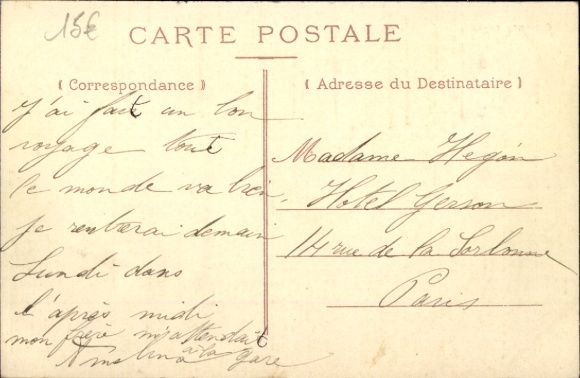 15€
CARTE POSTALE
( Correspondance )
J'ai fait un bon
voyage tout
le monde va bien,
je rentrerai demain
Lundi dans
l'après midi
mon frère m'attendait
à la gare
( Adresse du Destinataire )
Madame Hegón
Hotel Gerson
14 rue de la Sorbonne
Paris